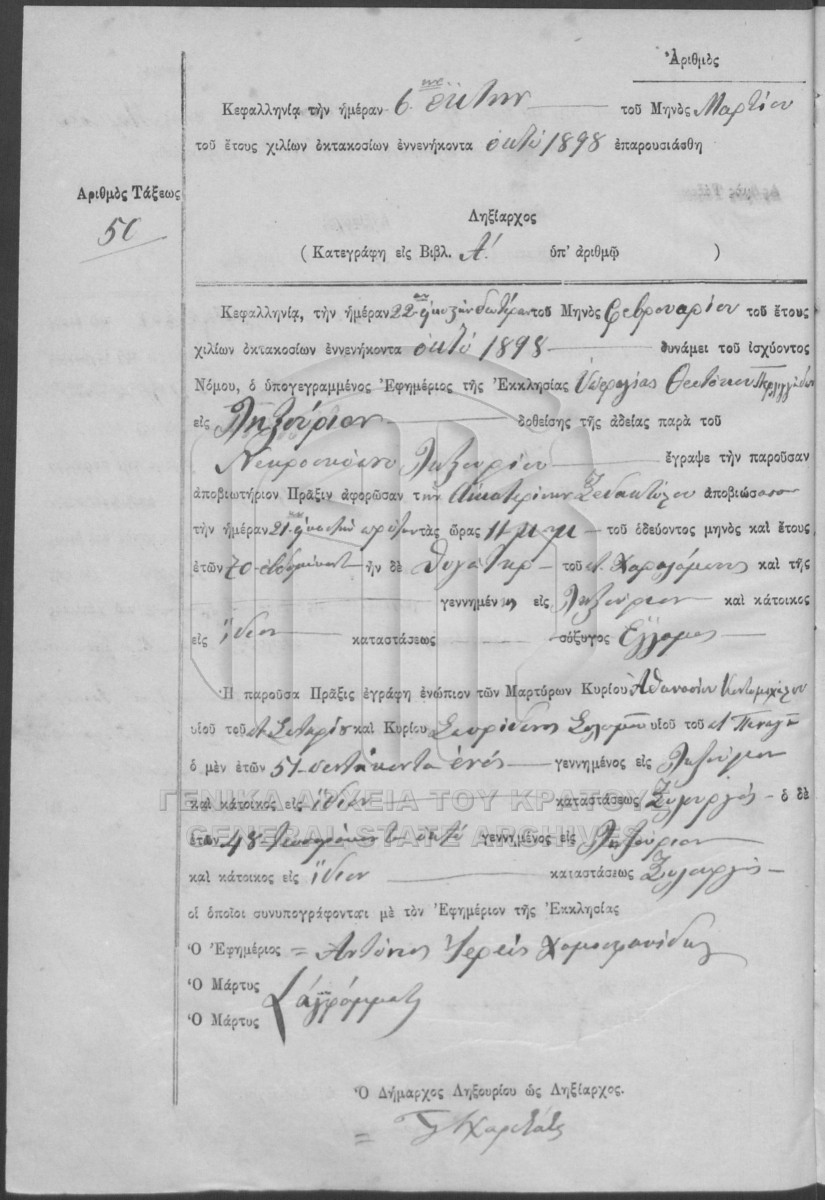 Ἀριθμὸς
Κεφαλληνίᾳ τὴν ἡμέραν 6 ἕκτην τοῦ Μηνὸς Μαρτίου
τοῦ ἔτους χιλίων ὀκτακοσίων ἐννενήκοντα ὀκτώ 1898 ἐπαρουσιάσθη
Ἀριθμὸς Τάξεως
50
Ληξίαρχος
(Κατεγράφη εἰς Βιβλ. Α΄. ὑπ' ἀριθμῷ )
Κεφαλληνίᾳ, τὴν ἡμέραν 22 τοῦ Μηνὸς Φεβρουαρίου τοῦ ἔτους
χιλίων ὀκτακοσίων ἐννενήκοντα ὀκτώ 1898 δυνάμει τοῦ ἰσχύοντος
Νόμου, ὁ ὑπογεγραμμένος Ἐφημέριος τῆς Ἐκκλησίας Θεοτόκου
εἰς Ληξούριον δοθείσης τῆς ἀδείας παρὰ τοῦ
Νεκροσκόπου Ληξουρίου ἔγραψε τὴν παροῦσαν
ἀποβιωτήριον Πρᾶξιν ἀφορῶσαν τὴν Αἰκατερίνην ἀποβιώσασαν
τὴν ἡμέραν 21 πρώτην τὰς ὥρας 11 μ μ τοῦ ὁδεύοντος μηνὸς καὶ ἔτους
ἐτῶν 70 ἑβδομήκοντ ἦν δὲ θυγάτηρ τοῦ Χαραλάμπους καὶ τῆς
γεννημένη εἰς Ληξούριον καὶ κάτοικος
εἰς ἴδιον καταστάσεως σύζυγος
Ἡ παροῦσα Πρᾶξις ἐγράφη ἐνώπιον τῶν Μαρτύρων Κυρίου Ἀθανασίου
υἱοῦ τοῦ καὶ Κυρίου Σπυρίδωνος υἱοῦ τοῦ
ὁ μὲν ἐτῶν 51 πεντήκοντα ἑνός γεννημένος εἰς Ληξούριον
καὶ κάτοικος εἰς ἴδιον καταστάσεως Ξυλουργός ὁ δὲ
ΓΕΝΙΚΑ ΑΡΧΕΙΑ ΤΟΥ ΚΡΑΤΟΥΣ
GENERAL STATE ARCHIVES
ἐτῶν 48 τεσσαράκοντα ὀκτώ γεννημένος εἰς Ληξούριον
καὶ κάτοικος εἰς ἴδιον καταστάσεως Ξυλουργός
οἱ ὁποῖοι συνυπογράφονται μὲ τὸν Ἐφημέριον τῆς Ἐκκλησίας
Ὁ Ἐφημέριος = Ἀντώνιος Ἱερεὺς
Ὁ Μάρτυς
Ὁ Μάρτυς ἀγράμματοι
Ὁ Δήμαρχος Ληξουρίου ὡς Ληξίαρχος.